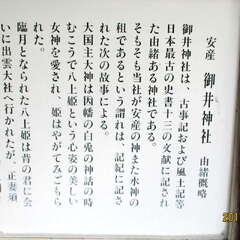 安産 御井神社 由緒概略
御井神社は、古事記および風土記等
日本最古の史書十三の文献に記され
た由緒ある神社である。
そもそも当社が安産の神また水神の
祖であるという謂れは、記紀に記さ
れた次の故事による。
大国主大神は因幡の白兎の神話の時
むこうで八上姫という心姿の美しい
女神を愛され、姫はやがてみごもら
れた。
臨月となられた八上姫は昔の君に会
いに出雲大社へ行かれたが、正妻須